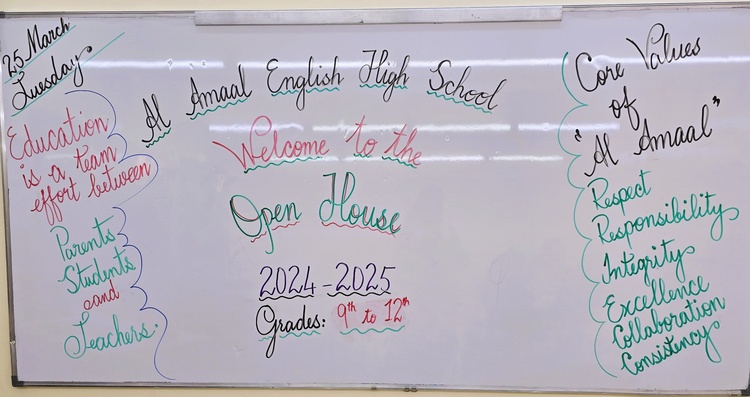 25 March
Tuesday
Education
is a team
effort between
Parents
Students
and
Teachers.
Al Amaal English High School
Welcome to the
Open House
2024-2025
Grades: 9th to 12th
Core Values
of
"Al Amaal"
Respect
Responsibility
Integrity
Excellence
Collaboration
Consistency